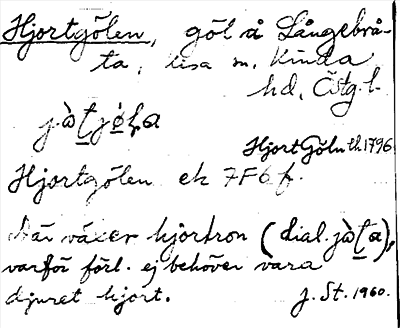 Hjortgölen, göl å Långebrå-
ta, Kisa sn, Kinda
hd, Östg. l.
Hjort Göln th. 1796
Hjortgölen ek 7F6f.
Där växer hjortron (dial.
varför förl. ej behöver vara
djuret hjort. J. St. 1960.